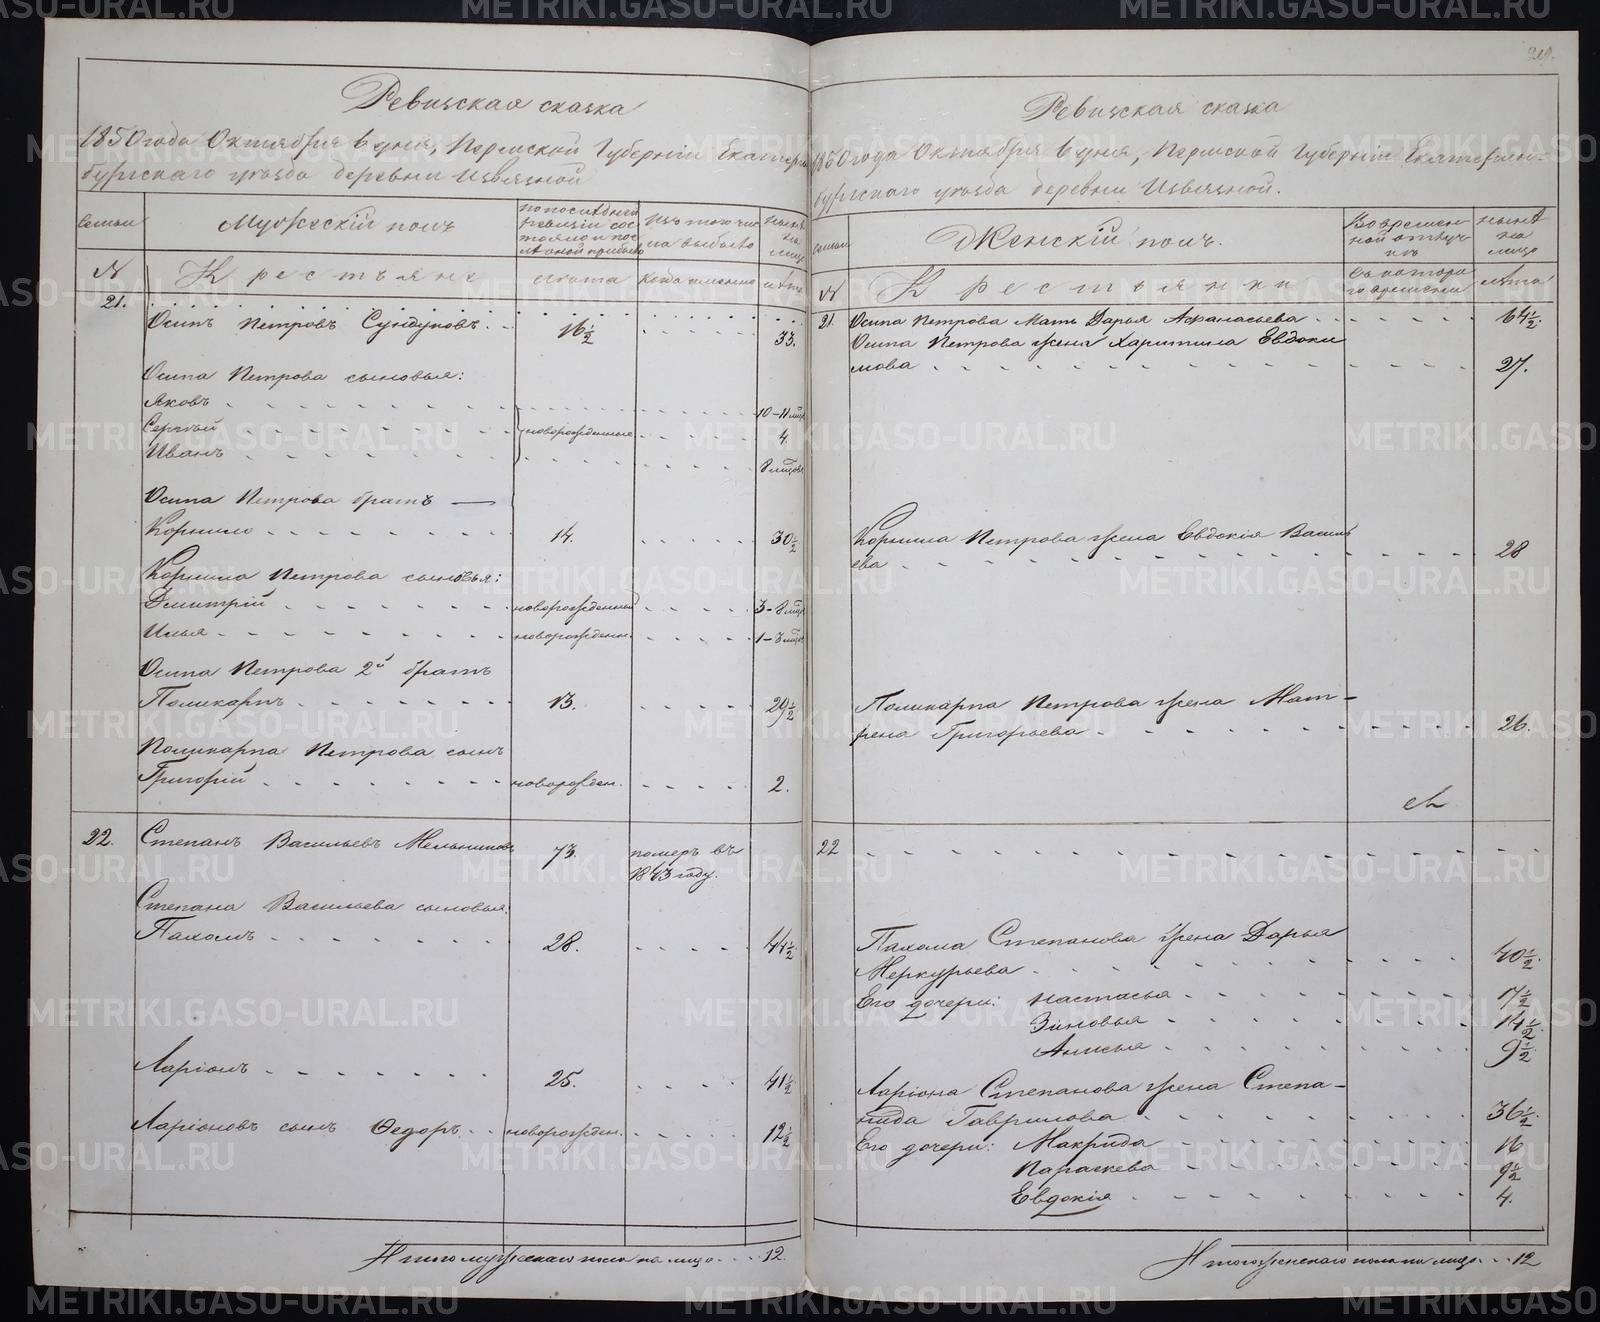 219.
Ревизская сказка
1850 года Октября 6 дня, Пермской Губерніи Екатерин
бургскаго уѣзда деревни Извязной
Семьи
Мужескій полъ
по последней ревизіи состояло и после оной прибыло
Изъ того числа выбыло
Нынѣ на лицо
№
Крестьяне
лѣта
когда именно
лѣта
21.
Осипъ Петровъ Сундуковъ. 16½ 33.
Осипа Петрова сыновья:
Яковъ 10-11 мѣц
Сергѣй новорожденные 4.
Иванъ 8 мѣцовъ
Осипа Петрова братъ —
Корнило 14. 30½
Корнила Петрова сыновья:
Дмитрій новорожденный 3-8 мѣц
Илья новорожденн. 1-3 мѣц
Осипа Петрова 2й братъ
Поликарпъ 13. 29½
Поликарпа Петрова сынъ
Григорій новорожден. 2.
22. Степанъ Васильевъ Мельниковъ 73. померъ въ
1843 году.
Степана Васильева сыновья:
Пахомъ 28. 44½
Ларіонъ 25. 41½
Ларіоновъ сынъ Ѳедоръ новорожден. 12½
Итого мужескаго пола на лицо 12.
Ревизская сказка
1850 года Октября 6 дня, Пермской Губерніи Екатерин-
бургскаго уѣзда деревни Извязной.
Семьи
Женскій полъ.
Во временной отлучкѣ
Нынѣ на лицо
№
Крестьянки
Съ котораго времени
лѣта
21. Осипа Петрова Мать Дарья Афанасьева 64½.
Осипа Петрова жена Харитина Евдоки
мова 27.
Корнила Петрова жена Евдокія Василь
ева 28
Поликарпа Петрова жена Мат-
рена Григорьева 26.
22
Пахома Степанова жена Дарья
Меркурьева 40½.
Его дочери: Настасья 17½
Зиновья 14½
Анисья 9½
Ларіона Степанова жена Степа-
нида Гаврилова 36½.
Его дочери: Макрида 16
Параскева 9½
Евдокія 4.
Итого женскаго пола на лицо 12
METRIKI.GASO-URAL.RU